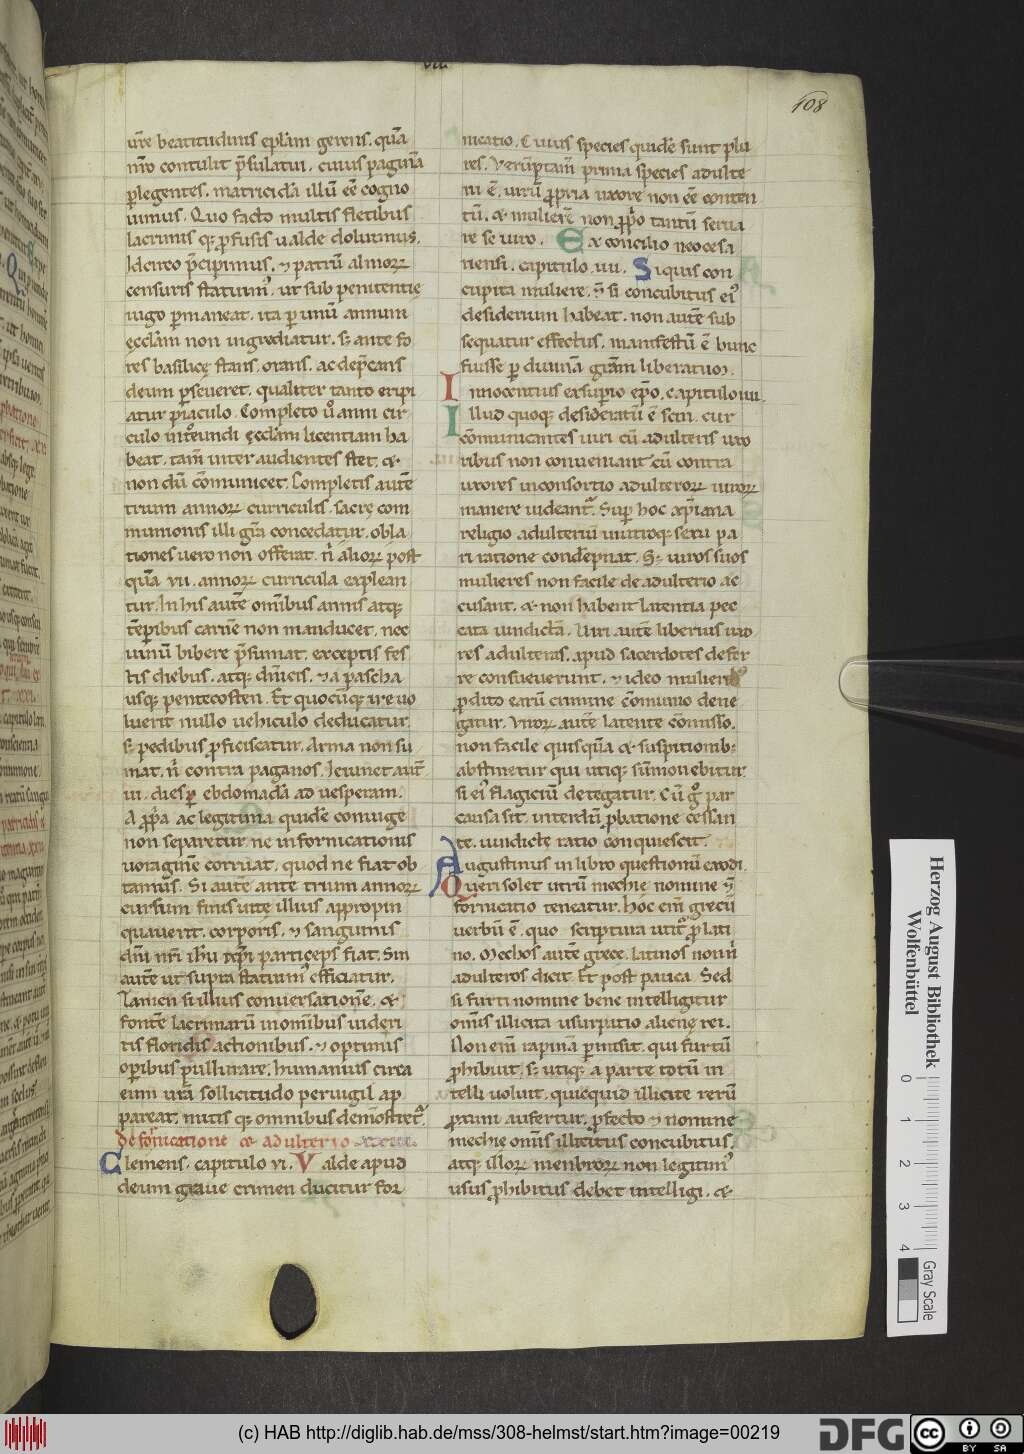 108
ur̄e beatitudinis ep̄lam gerens. quā
nr̄o contulit p̄sulatui. cuius paginā
ꝑlegentes. matricidā illū eē cogno
uimus. Quo facto multis fletibus
lacrimis qꝫ ꝓfusis ualde doluimus.
Idcirco p̄cipimus. ⁊ patrū almoꝝ
censuris statuim᾽. ut sub penitentię
iugo ꝑmaneat. ita ꝑ unū annum
ęccl̄am non ingrediatur. sꝫ ante fo
res basilicę stans. orans. ac dep̄cans
deum ꝑseueret. qualiter tanto eripi
atur piaculo. Completo u᾽o anni cir
culo int᾽eundi ęccl̄am licentiam ha
beat. tam̄ inter audientes stet. &
non dū cōmunicet. Completis autē
trium annoꝝ curriculis. sacrę com
munionis illi gr̄a concedatur. obla
tiones uero non offerat. n᾽ alioꝝ post
quā vii. annoꝝ curricula explean
tur. In his autē omībus annis atqꝫ
tēporibus carnē non manducet. nec
uinū bibere p̄sumat. exceptis fes
tis diebus. atqꝫ dn̄icis. ⁊ a pascha
usqꝫ pentecosten. Et quocūqꝫ ire uo
luerit nullo uehiculo deducatur.
sꝫ pedibus ꝓficiscatur. Arma non su
mat. n᾽ contra paganos. Ieiunet aut̄
iii. dies ꝑ ebdomadā ad uesperam.
A ꝓp᾽a ac legitima quidē coniuge
non separetur. ne in fornicationis
uoraginē corruat. quod ne fiat ob
tamus. Si autē ante trium annoꝝ
cursum finis uitę illius appropin
quauerit. corporis. ⁊ sanguinis
dn̄i nr̄i ih̄u xp̄i particeps fiat. Sin
autē ut supra statuim᾽ efficiatur.
Tamen si illius conuersationē. &
fontē lacrimarū in omībus uideri
tis floridis actionibus. ⁊ optimis
oꝑibus pullulare. humanius circa
eum urā sollicitudo peruigil ap
pareat. intus qꝫ omnibus demōstret᾽.
De fornicatione & adulterio
Clemens. capitulo vi. Valde apud
deum graue crimen ducitur for
nicatio. Cuius species quidē sunt plu
res. Verūptam̄ prima species adulte
rii ē. uirū ꝓpria uxore non eē conten
tū. & mulierē non ꝓp᾽o tantū serua
re se uiro. Ex concilio neocesa
riensi. capitulo. iiii. Si quis con
cupita muliere. n̄ si concubitus ei᾽
desiderium habeat. non autē sub
sequatur effectus. manifestū ē hunc
fuisse ꝑ diuinā grām liberatum.
Innocentius exsuperio ep̄o. capitulo iiii.
Illud quoqꝫ desideratū ē sciri. cur
cōmunicantes uiri cū adulteris uxo
ribus non conueniant cū contra
uxores in consortio adulteroꝝ uiroꝝ
manere uideant᾽. Suꝑ hoc xp̄iana
religio adulteriū in utroqꝫ sexu pa
ri ratione condēpnat. Sꝫ uiros suos
mulieres non facile de adulterio ac
cusant. & non habent latentia pec
cata uindictā. Viri autē liberius uxo
res adulteras. apud sacerdotes defer
re consueuerunt. ⁊ ideo mulierib᾽
ꝓdito earū crimine cōmunio dene
gatur. Viroꝝ autē latente cōmisso.
non facile quisquā ex suspitionibꝫ
abstinetur qui utiqꝫ sūmouebitur
si ei᾽ flagiciū detegatur. Cū g᾽ par
causa sit. interdū ꝓbatione cessan
te. uindictę ratio conquiescit.
Augustinus in libro questionū exodi.
Queri solet utrū mechię nomine n̄
fornicatio teneatur. hoc em̄ grecū
uerbū ē. quo scriptura utit᾽ ꝓ lati
no. Mechos autē grece. latinos non n᾽
adulteros dicit. Et post pauca. Sed
si furti nomine bene intelligitur
omīs illicita usurpatio alienę rei.
Non em̄ rapinā ꝑmisit. qui furtū
ꝓhibuit. sꝫ utiqꝫ a parte totū in
telli uoluit. quicquid illicite rerū
ꝓximi aufertur. ꝓfecto ⁊ nomine
mechię omīs illicitus concubitus.
atqꝫ illoꝝ menbroꝝ non legitim᾽
usus ꝓhibitus debet intelligi. &
Herzog August Bibliothek
Wolfenbüttel
0 1 2 3 4
Gray Scale
(c) HAB http://diglib.hab.de/mss/308-helmst/start.htm?image=00219
DFG
cc BY SA